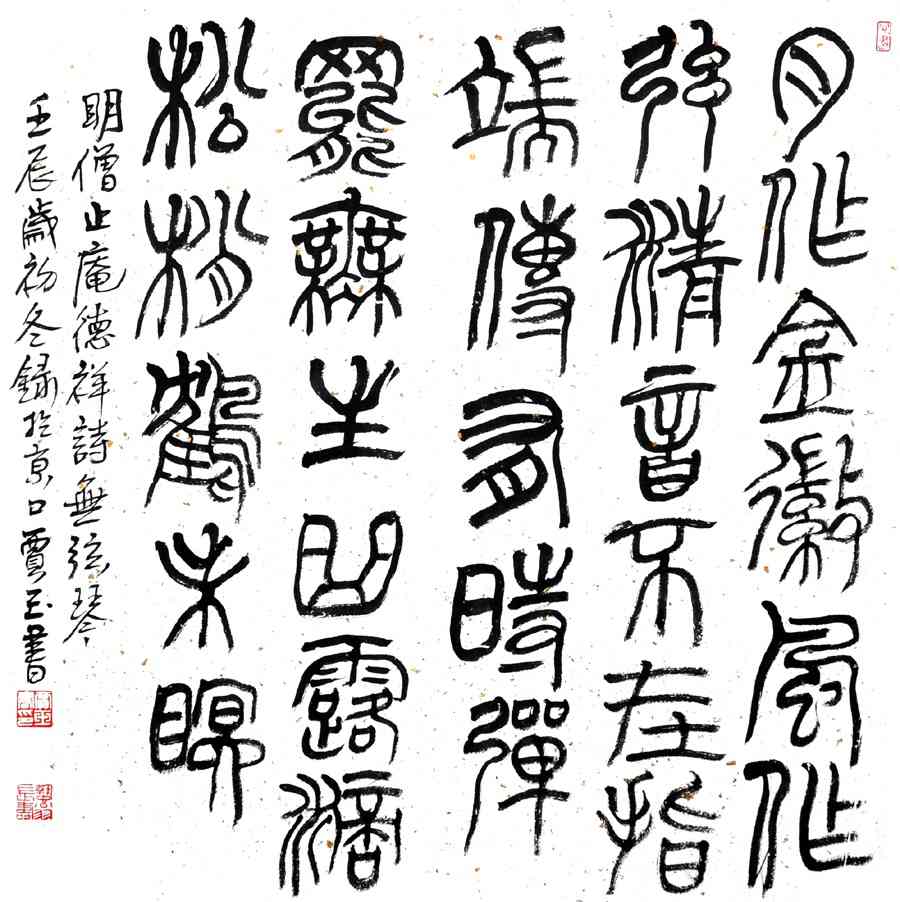 月作金徽風作
弦清音不在指
端傳有時彈
罷無生曲露滴
松梢鶴未瞑
明僧止庵德祥詩無弦琴
壬辰歲初冬錄於京口賈玉書